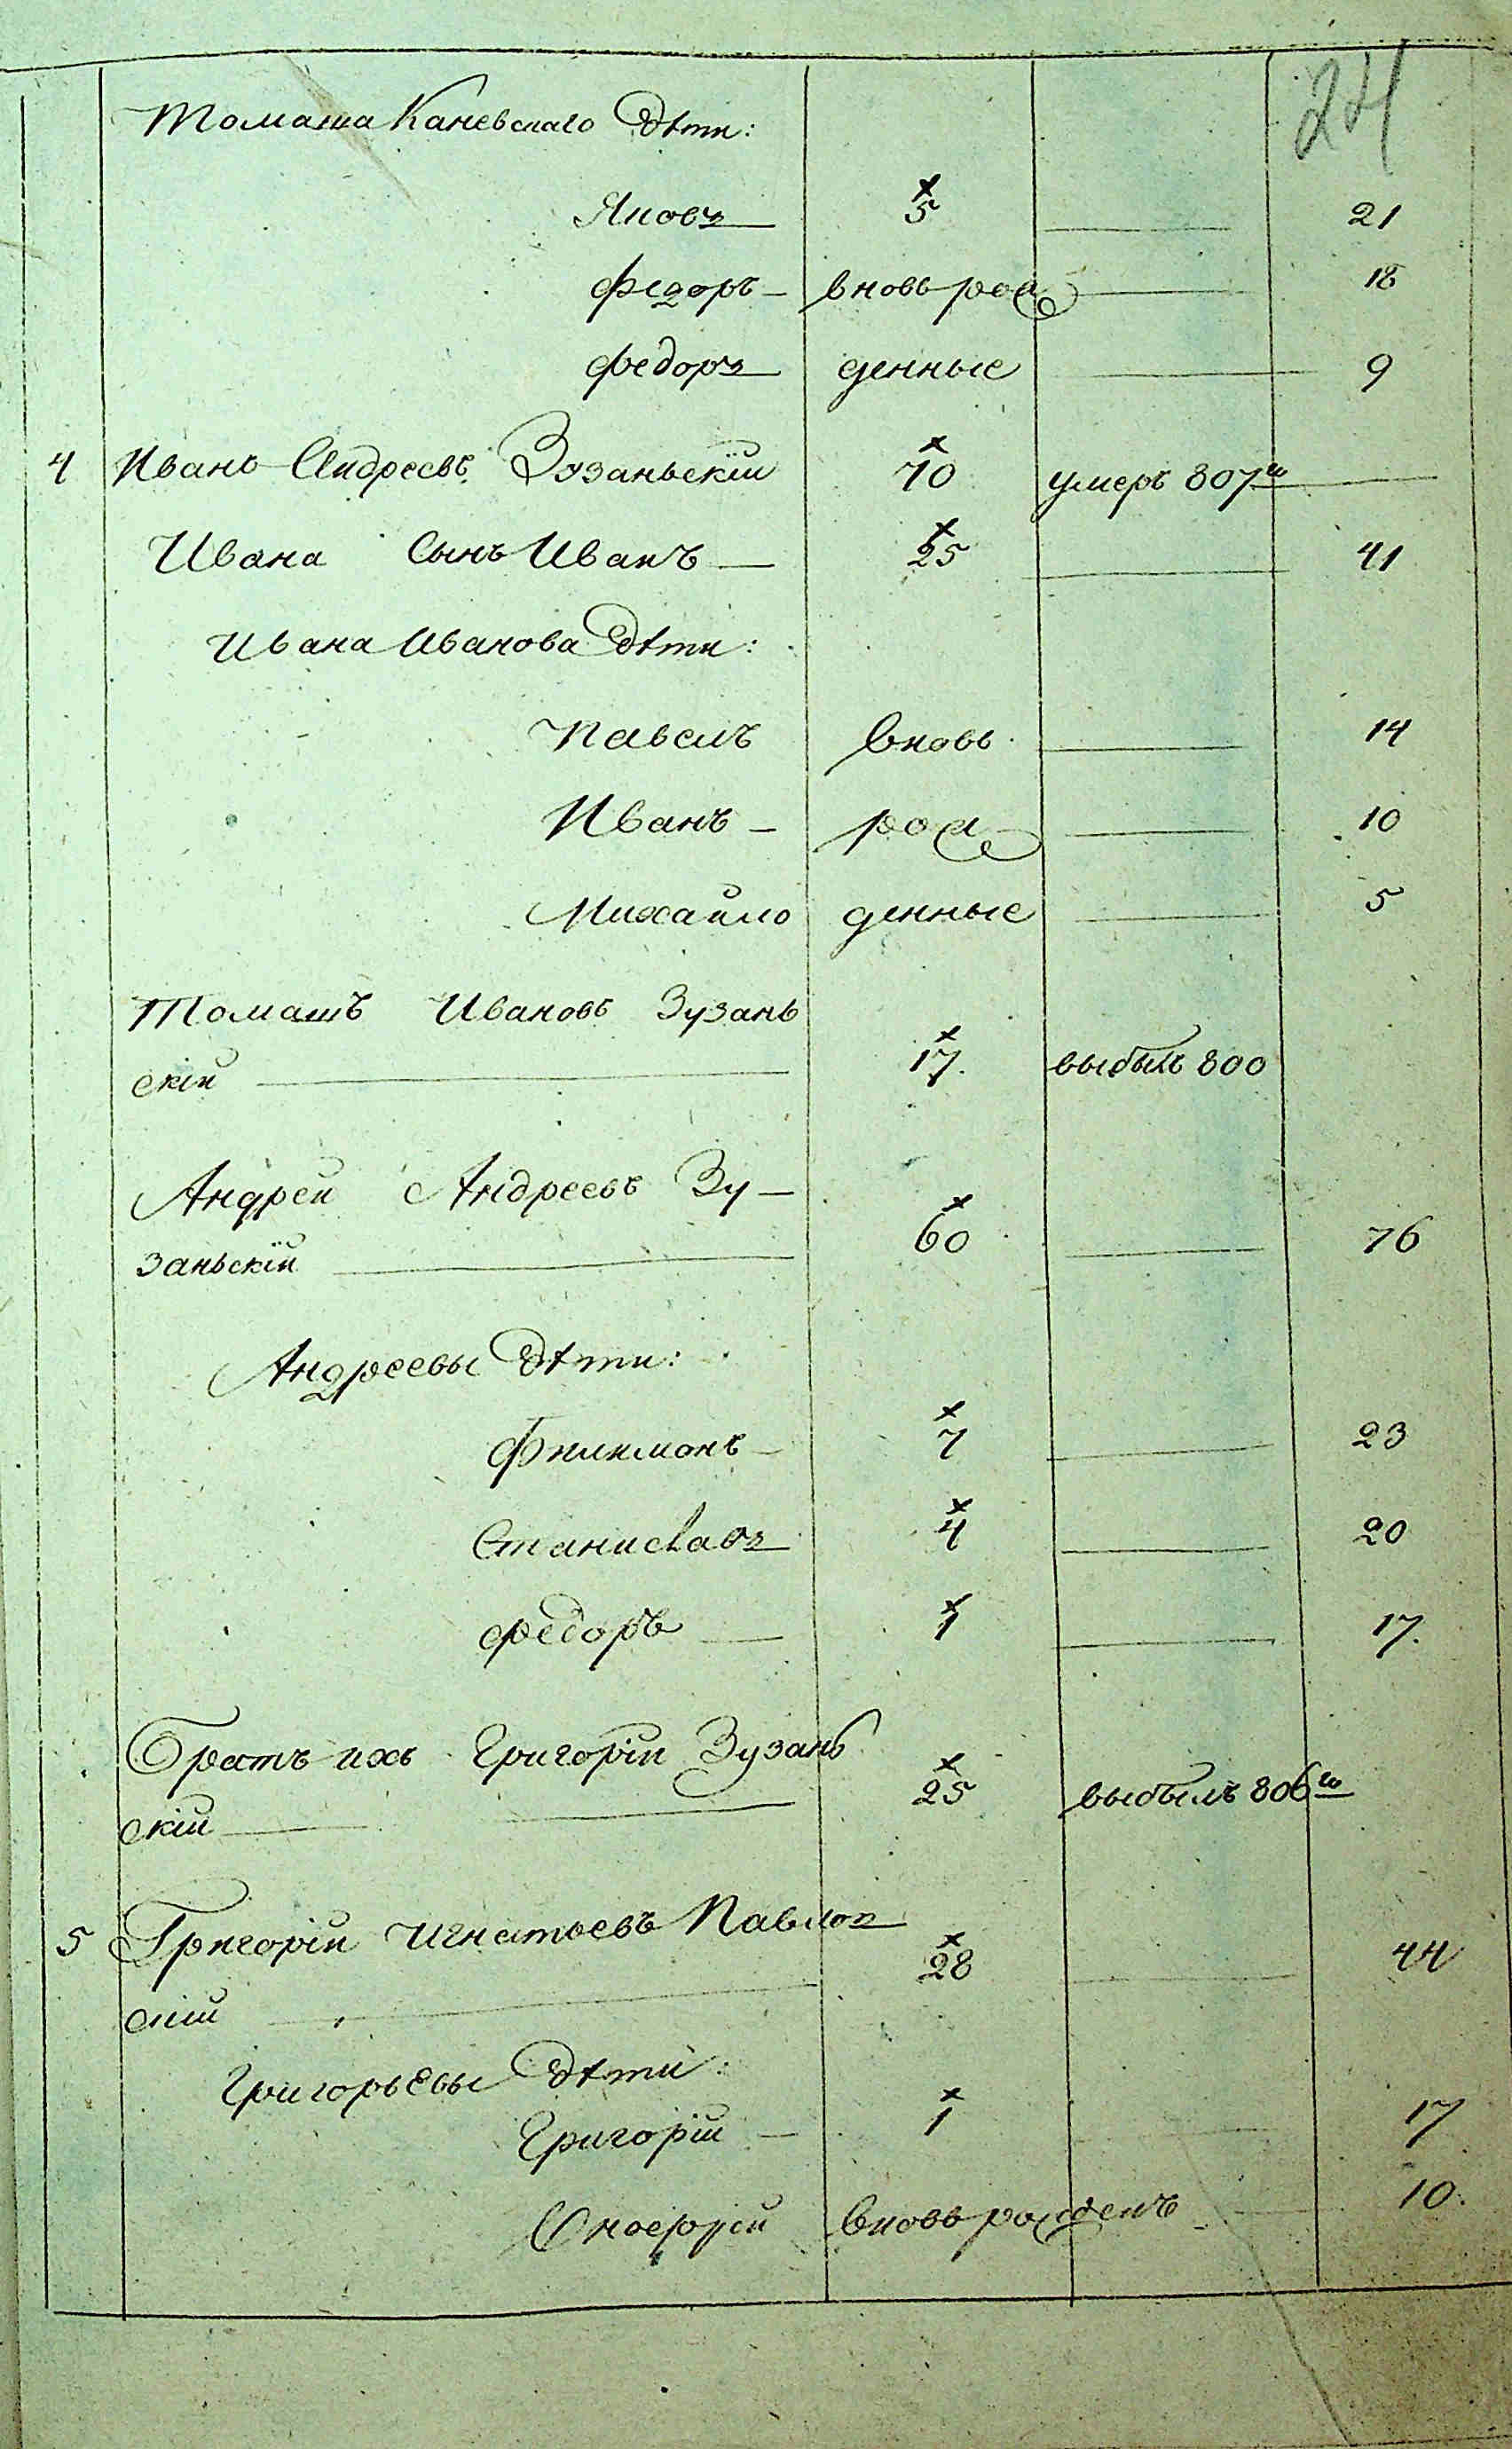 24
Томаша Каневскаго дѣти:
Яковъ 5 21
Федоръ вновь рож 18
Федоръ денные 9
4 Иванъ Андреевъ Зузаньскій 70 умеръ 807го
Ивана Сынъ Иванъ 25 41
Ивана Иванова дѣти:
Павелъ вновь 14
Иванъ рож 10
Михайло денные 5
Томашъ Ивановъ Зузань
скій 17. выбылъ 800
Андрей Андреевъ Зу
заньскій 60 76
Андреевы дѣти:
Филимонъ 7 23
Станиславъ 4 20
Федоръ 1 17.
Братъ ихъ Григорій Зузань
скій 25 выбылъ 806го
5 Григорій Игнатьевъ Павлов
скій 28 44
Григорьевы дѣти:
Григорій 1 17
Онофрій вновь рожденъ 10.